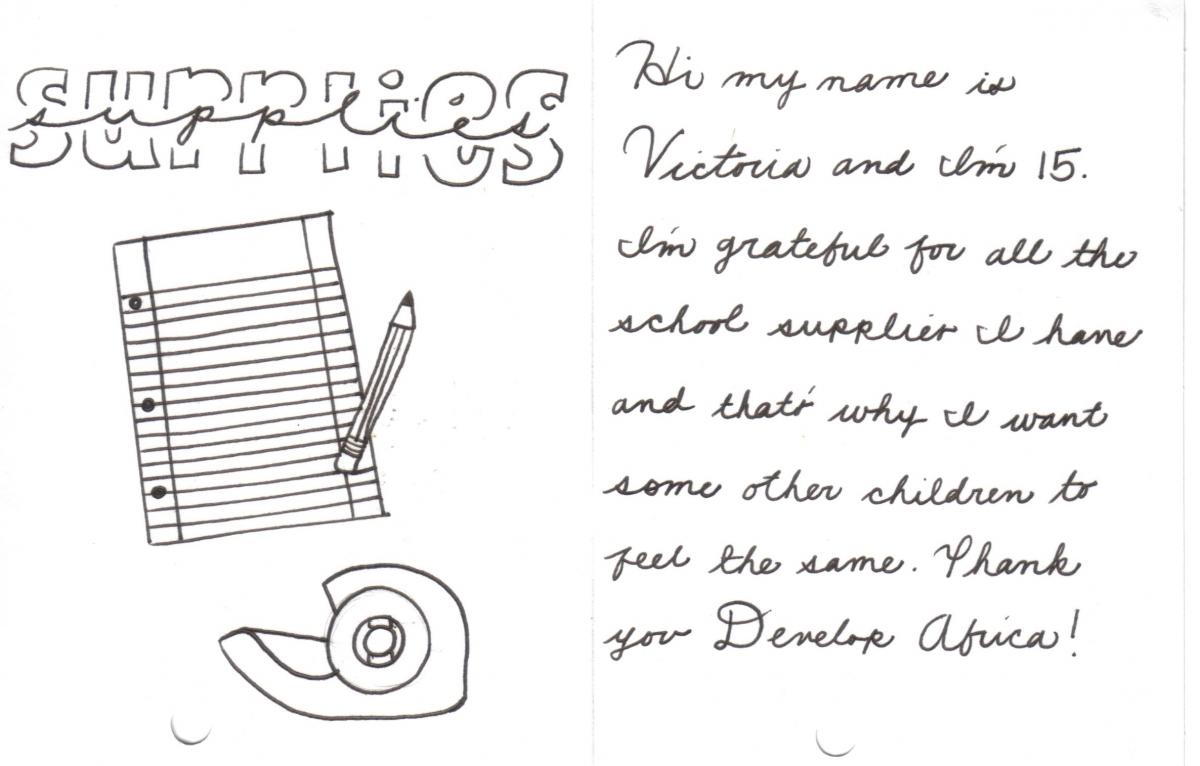 supplies
Hi my name is
Victoria and I'm 15.
I'm grateful for all the
school supplies I have
and that's why I want
some other children to
feel the same. Thank
you Develop Africa!